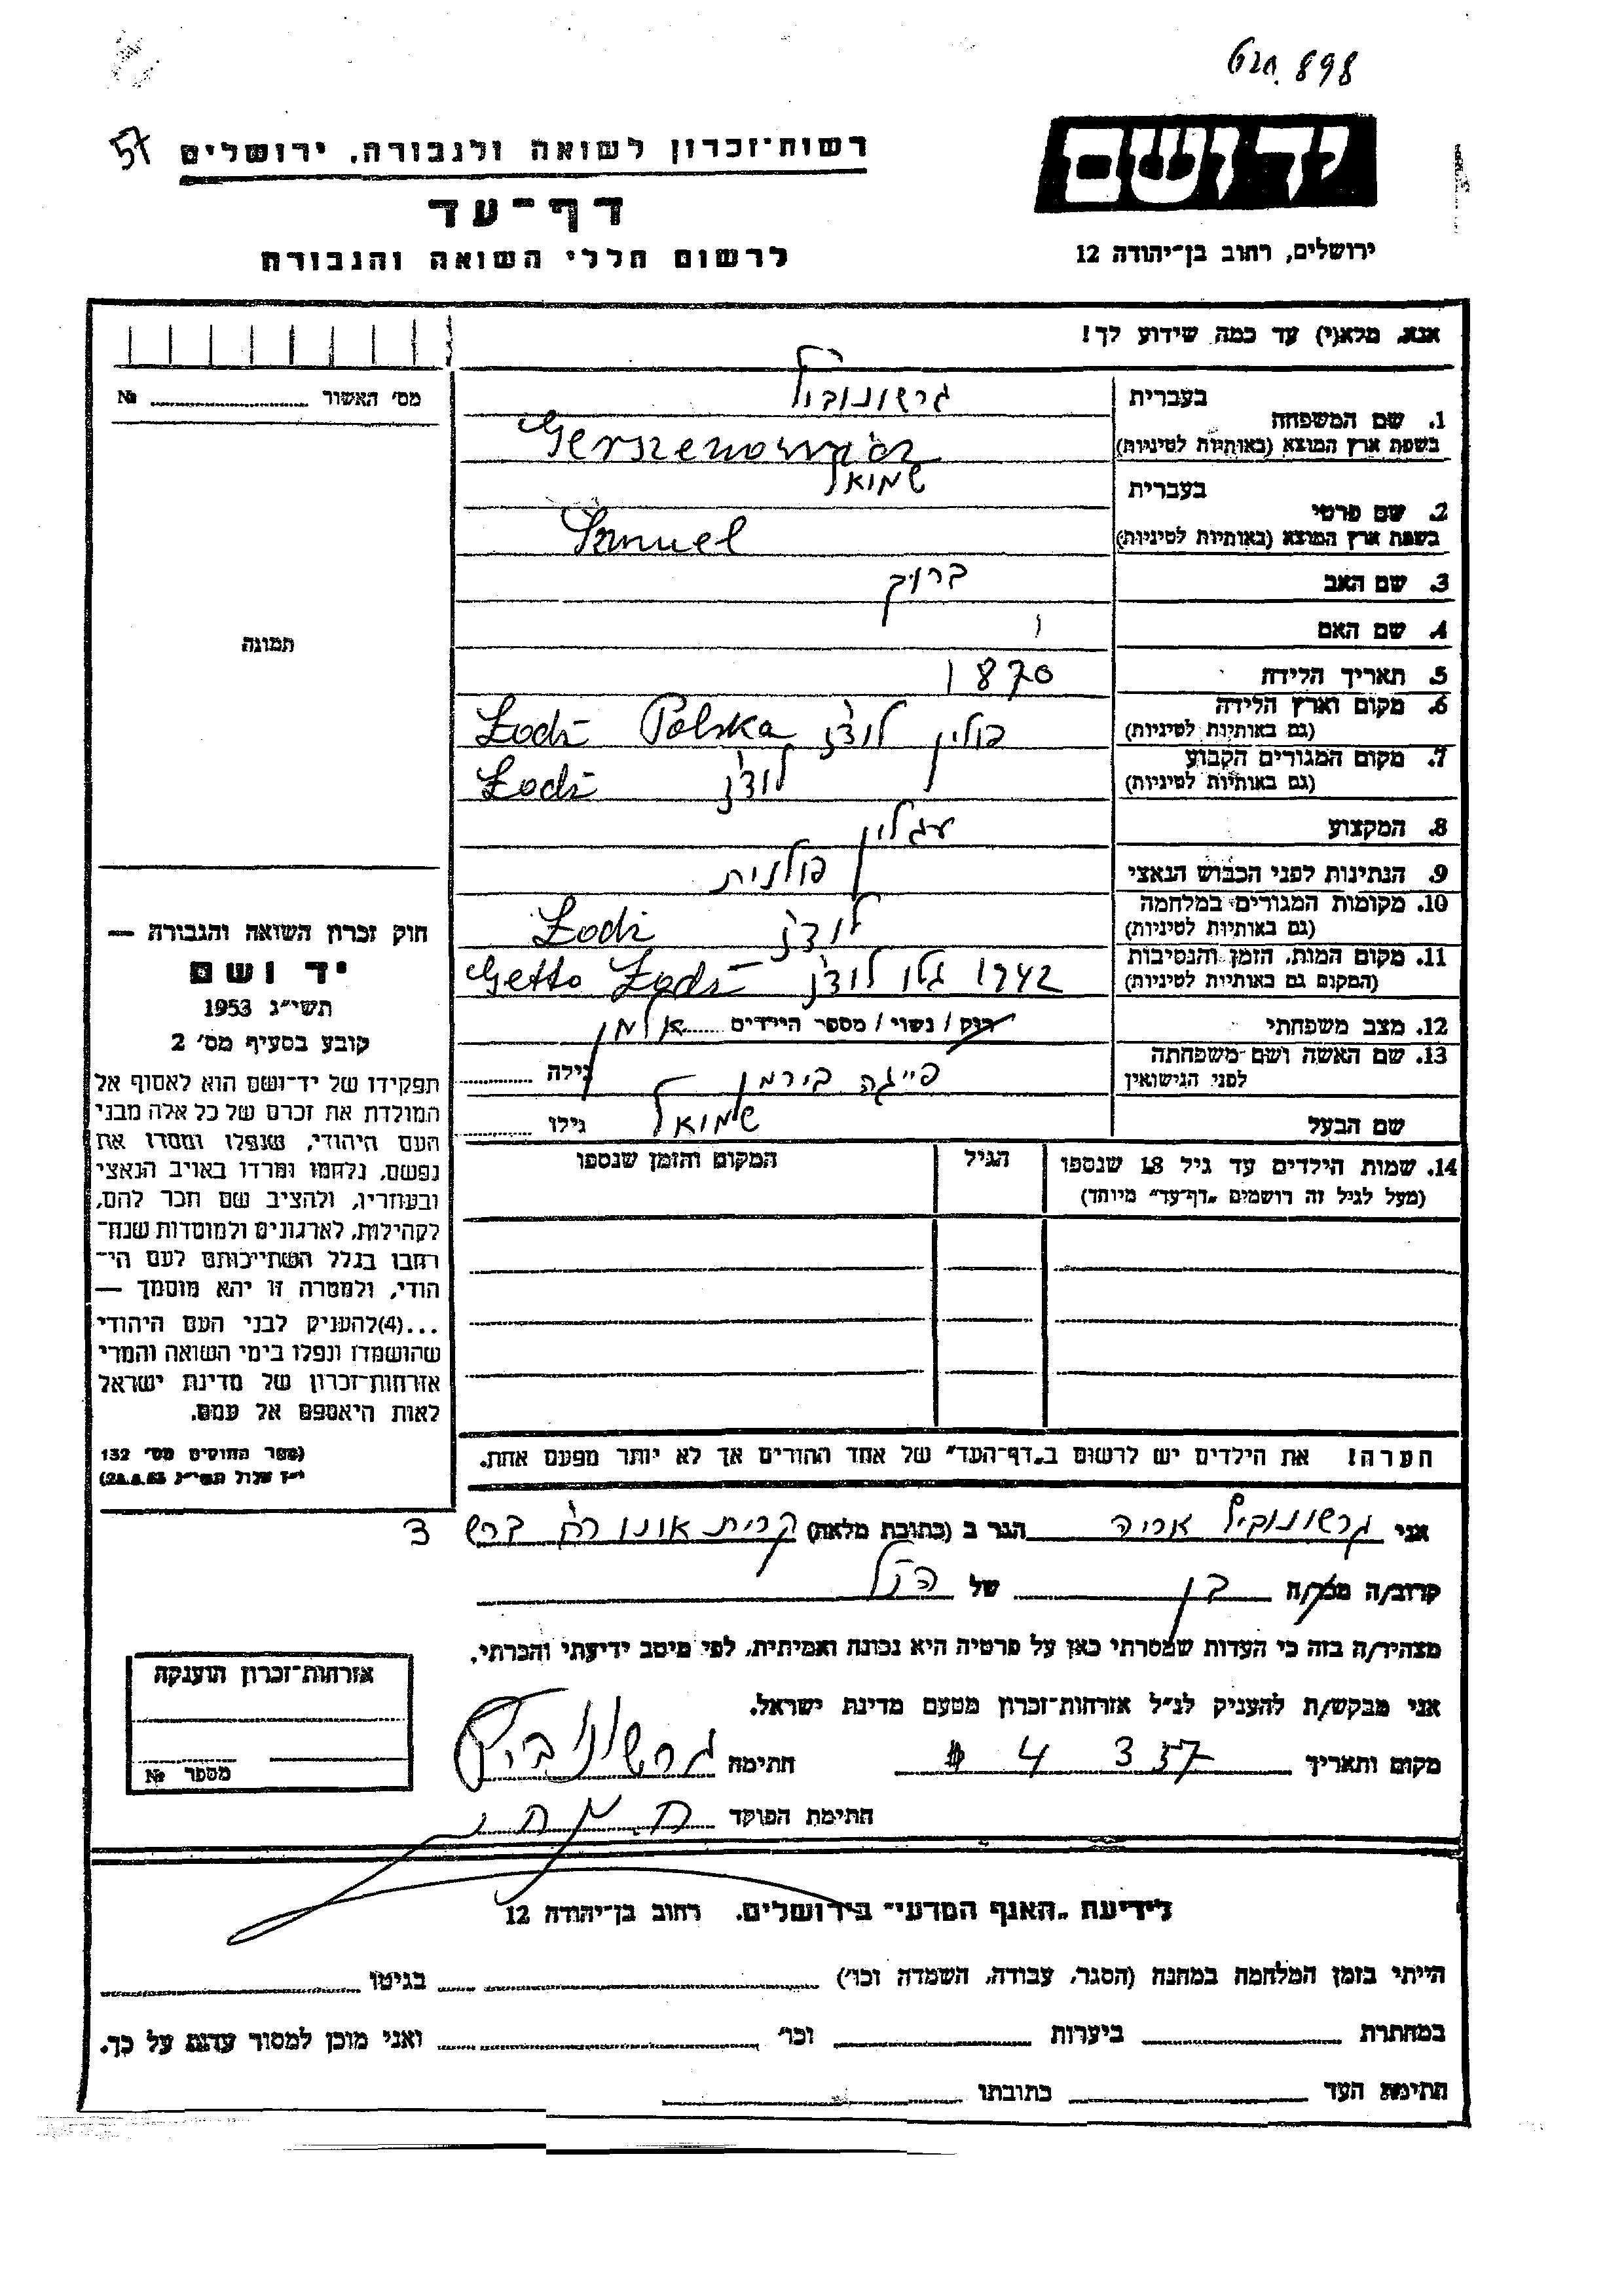 898
57
רשות־זכרון לשואה ולגבורה, ירושלים
יד ושם
דף־עד
לרשום חללי השואה והגבורה
ירושלים, רחוב בן־יהודה 12
אנא, מלא(י) עד כמה שידוע לך!
מס׳ האשור №
בעברית
1. שם המשפחה
בשפת ארץ המוצא (באותיות לטיניות)
Gerszenowicz
בעברית שמואל
2. שם פרטי
בשפת ארץ המוצא (באותיות לטיניות)
Samuel
3. שם האב ברוך
4. שם האם
תמונה
5. תאריך הלידה 1870
6. מקום וארץ הלידה פולין לודז׳ Polska Łodź
(גם באותיות לטיניות)
7. מקום המגורים הקבוע לודז׳ Łodź
(גם באותיות לטיניות)
8. המקצוע עגלון
9. הנתינות לפני הכבוש הנאצי פולנית
10. מקומות המגורים במלחמה לודז׳ Łodź
(גם באותיות לטיניות)
11. מקום המות, הזמן והנסיבות 1942 גטו לודז׳ Getto Łodź
(המקום גם באותיות לטיניות)
12. מצב משפחתי רווק / נשוי / מספר הילדים אלמן
13. שם האשה ושם משפחתה פייגה בירמן גילה
לפני הנישואין
שם הבעל שמואל גילו
14. שמות הילדים עד גיל 18 שנספו הגיל המקום והזמן שנספו
(מעל לגיל זה רושמים „דף־עד״ מיוחד)
הערה! את הילדים יש לרשום ב„דף־העד״ של אחד ההורים אך לא יותר מפעם אחת.
חוק זכרון השואה והגבורה —
יד ושם
תשי״ג 1953
קובע בסעיף מס׳ 2
תפקידו של יד־ושם הוא לאסוף אל
המולדת את זכרם של כל אלה מבני
העם היהודי, שנפלו ומסרו את
נפשם, נלחמו ומרדו באויב הנאצי
ובעוזריו, ולהציב שם וזכר להם,
לקהילות, לארגונים ולמוסדות שנח־
רבו בגלל השתייכותם לעם הי־
הודי, ולמטרה זו יהא מוסמך —
...(4)להעניק לבני העם היהודי
שהושמדו ונפלו בימי השואה והמרי
אזרחות־זכרון של מדינת ישראל
לאות היאספם אל עמם.
(ספר החוקים מס׳ 132
י״ז אלול תשי״ג 28.8.53)
אני אריה הגר ב (כתובת מלאה) קרית אונו רח׳ 3
קרוב/ה מכר/ה בן של הנ״ל
מצהיר/ה בזה כי העדות שמסרתי כאן על פרטיה היא נכונה ואמיתית, לפי מיטב ידיעתי והכרתי.
אני מבקש/ת להעניק לנ״ל אזרחות־זכרון מטעם מדינת ישראל.
מקום ותאריך 4 3 57 חתימה
חתימת הפוקד
אזרחות־זכרון הוענקה
מספר №
לידיעת „האגף המדעי״ בירושלים. רחוב בן־יהודה 12
הייתי בזמן המלחמה במחנה (הסגר, עבודה, השמדה וכו׳) בגיטו
במחתרת ביערות וכו׳ ואני מוכן למסור עדות על כך.
חתימת העד כתובתו